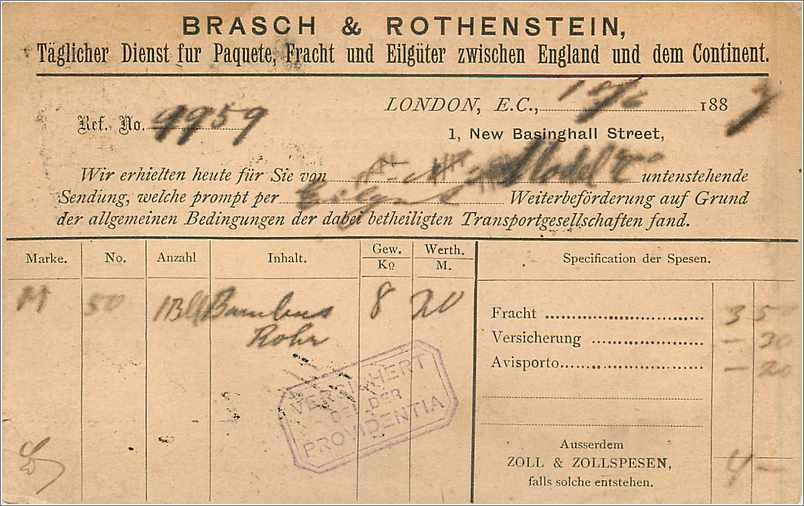 BRASCH & ROTHENSTEIN,
Täglicher Dienst fur Paquete, Fracht und Eilgüter zwischen England und dem Continent.
LONDON, E.C., 188
Ref. No. 9959
1, New Basinghall Street,
Wir erhielten heute für Sie von untenstehende
Sendung, welche prompt per Eilgut Weiterbeförderung auf Grund
der allgemeinen Bedingungen der dabei betheiligten Transportgesellschaften fand.
Marke. No. Anzahl Inhalt. Gew. Kº Werth. M. Specification der Spesen.
M 50 1 Bll Bambus 8 20
Rohr
Fracht 3 50
Versicherung – 30
Avisporto – 20
VERSICHERT
BEI DER
PROVIDENTIA
Ausserdem
ZOLL & ZOLLSPESEN, 4 –
falls solche entstehen.